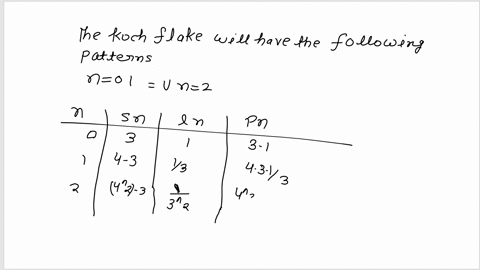 The Koch flake will have the following
patterns
n=0 1 = U n=2
n sn ln Pn
0 3 1 3·1
1 4-3 1/3 4·3·1/3
2 (4^2)-3 1/3^2 4^: